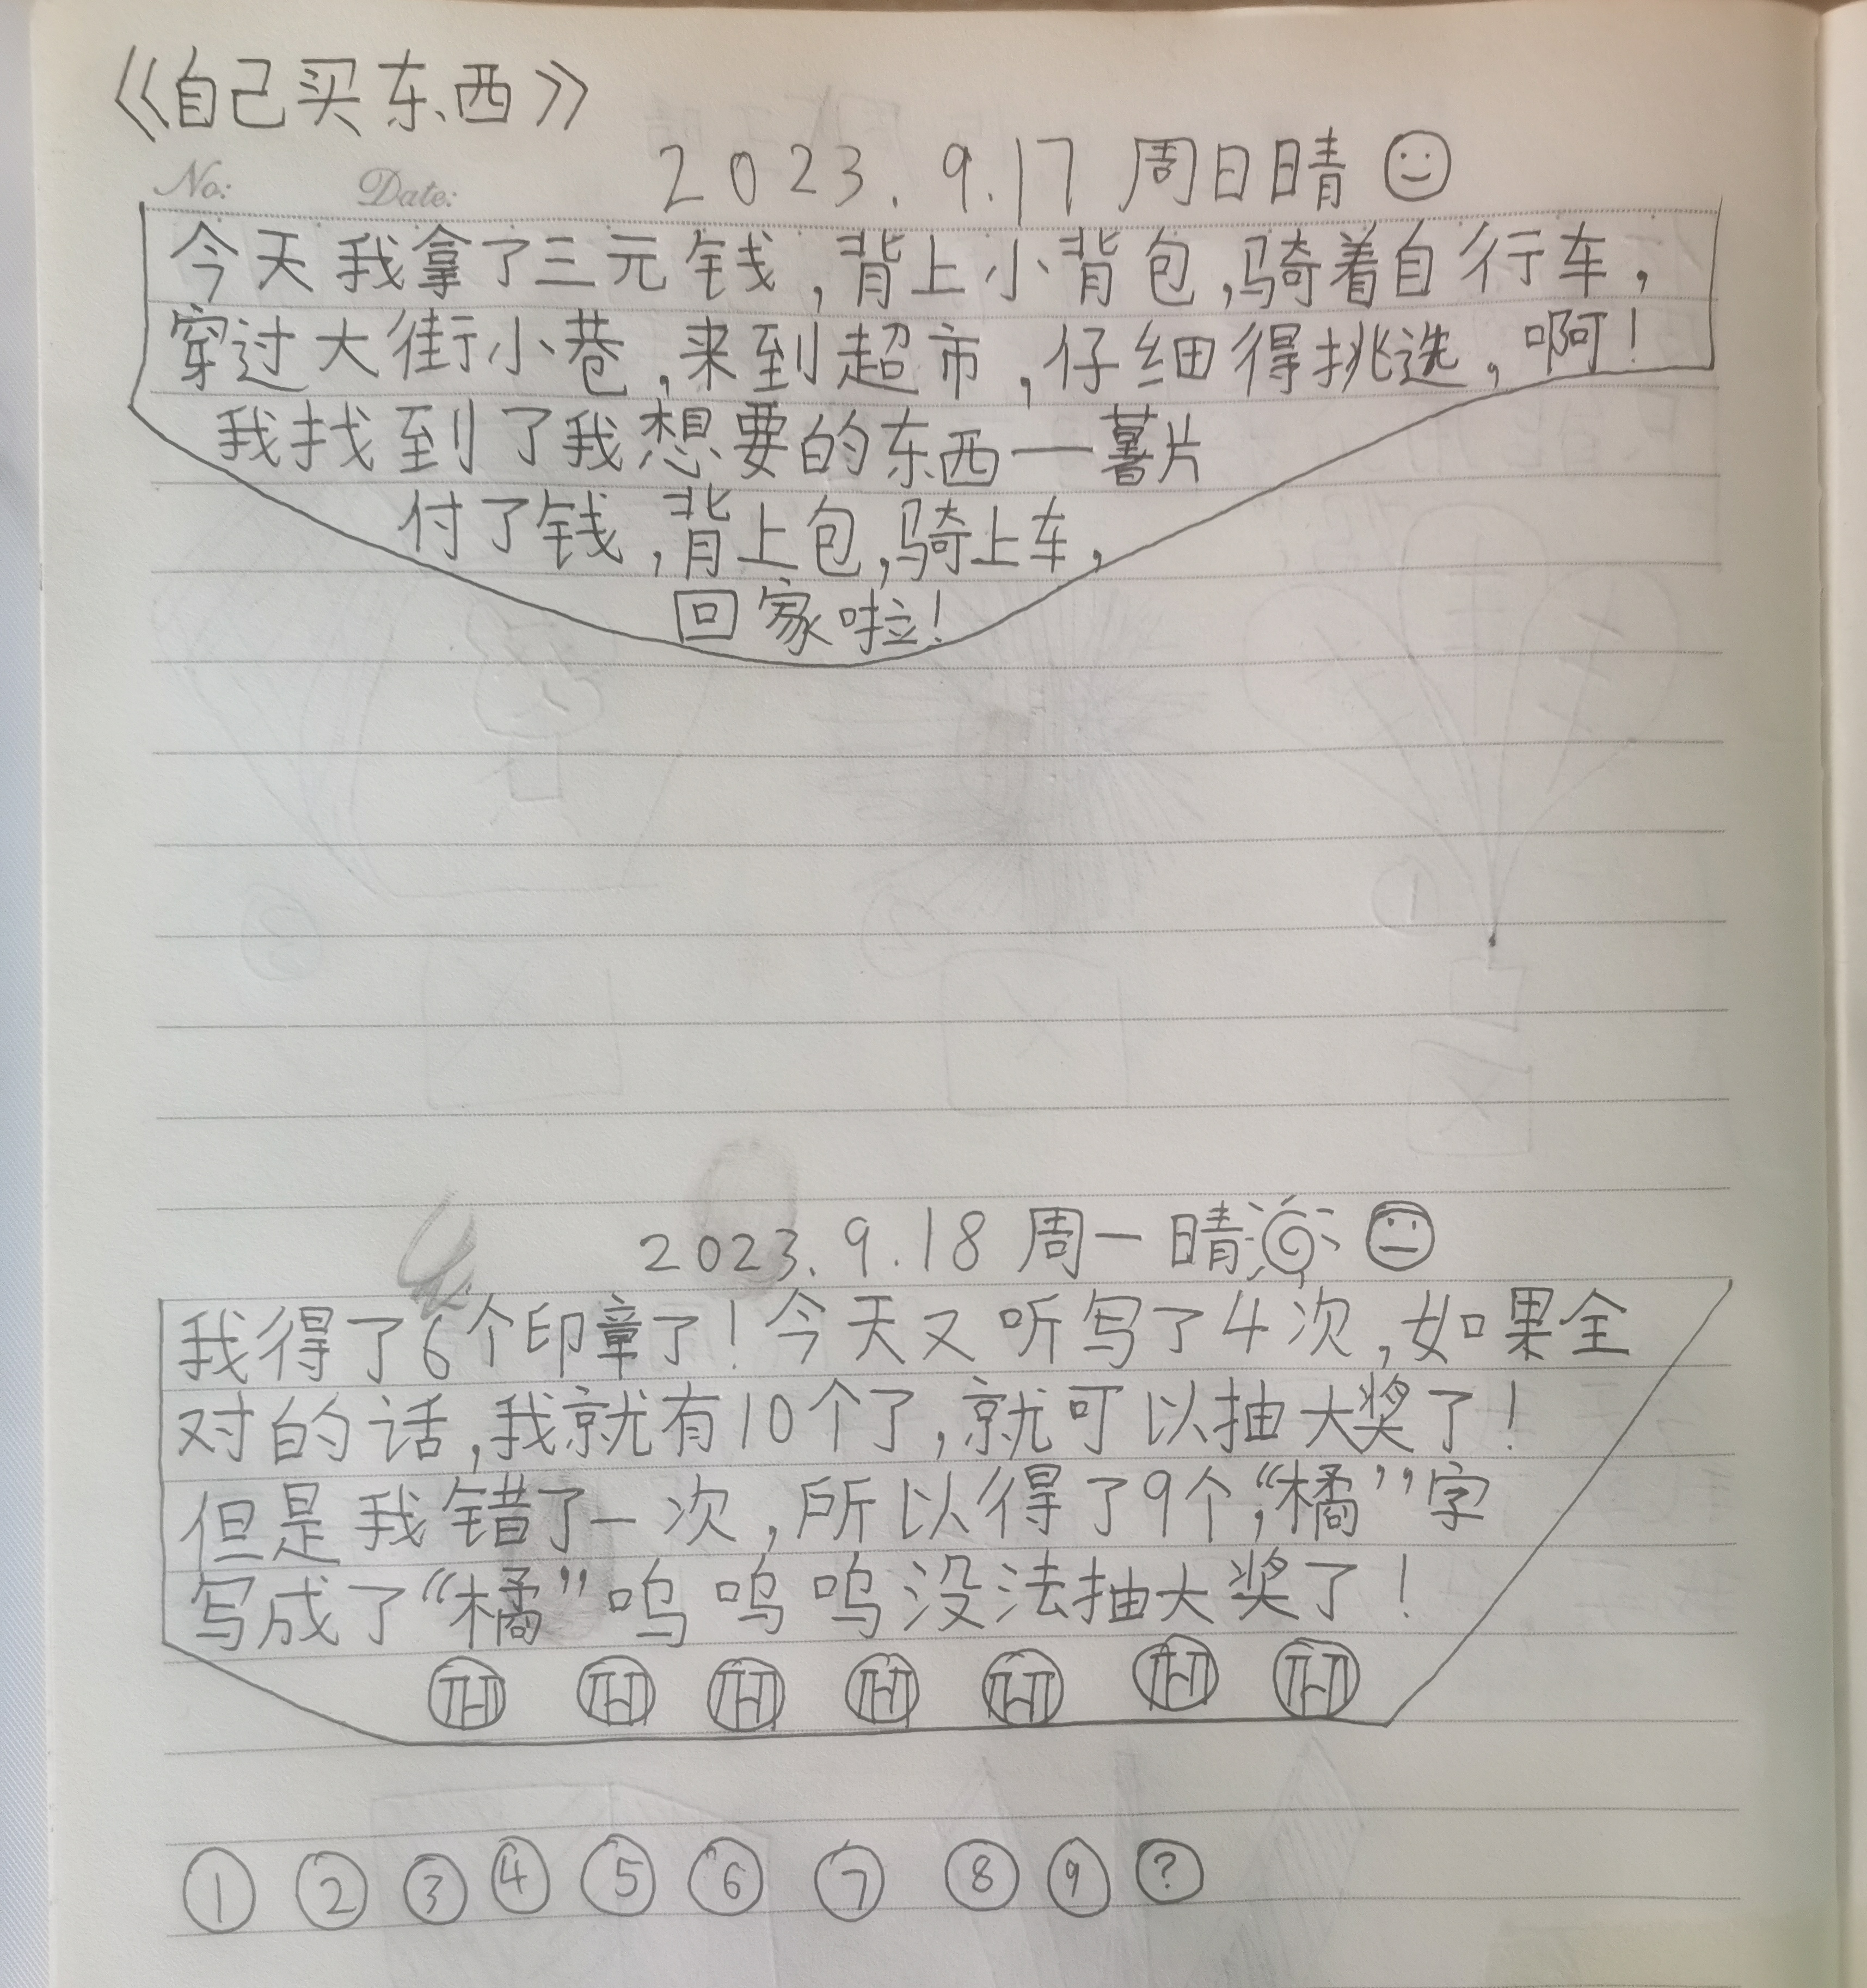 《自己买东西》
No: Date: 2023.9.17 周日晴
今天我拿了三元钱,背上小背包,骑着自行车,
穿过大街小巷,来到超市,仔细得挑选,啊!
我找到了我想要的东西一薯片
付了钱,背上包,骑上车,
回家啦!
2023.9.18 周一 晴
我得了6个印章了!今天又听写了4次,如果全
对的话,我就有10个了,就可以抽大奖了!
但是我错了一次,所以得了9个,“橘”字
写成了“橘”呜呜呜没法抽大奖了!
① ② ③ ④ ⑤ ⑥ ⑦ ⑧ ⑨ ?